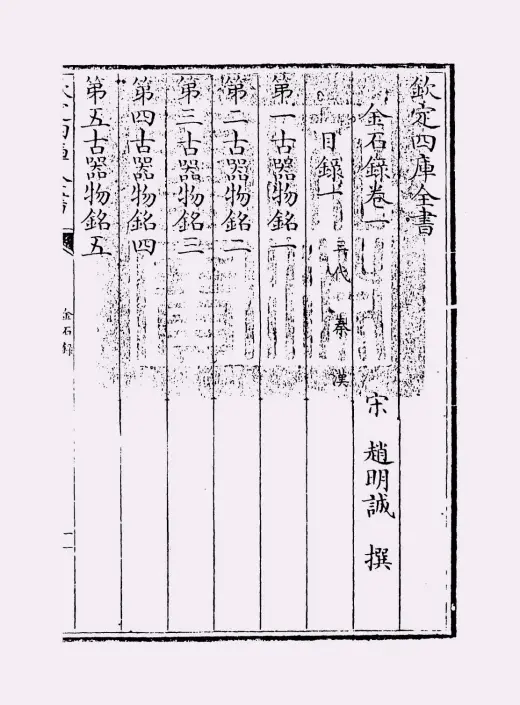 欽定四庫全書
金石錄卷一
宋 趙明誠 撰
目錄一 三代 秦 漢
第一古器物銘一
第二古器物銘二
第三古器物銘三
第四古器物銘四
第五古器物銘五
金石錄